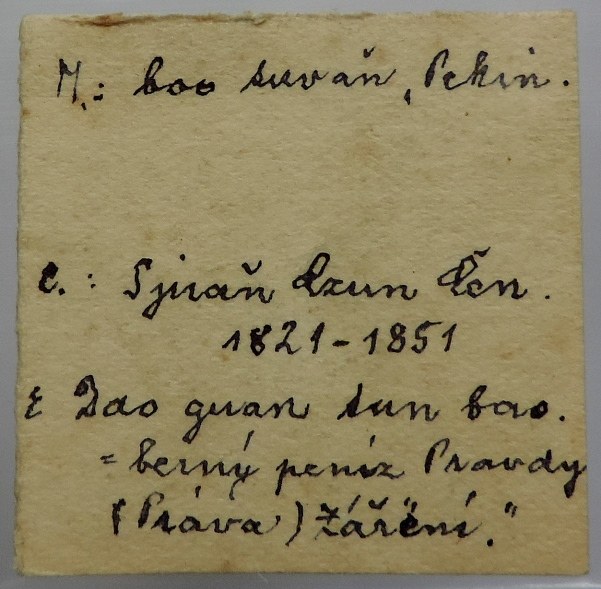 M.: boo tuvaň, Pekin.
C.: Sjuaň Czun Čen.
1821-1851
Dao guan tun bao.
= berný peníz Pravdy
(Práva) Záření."